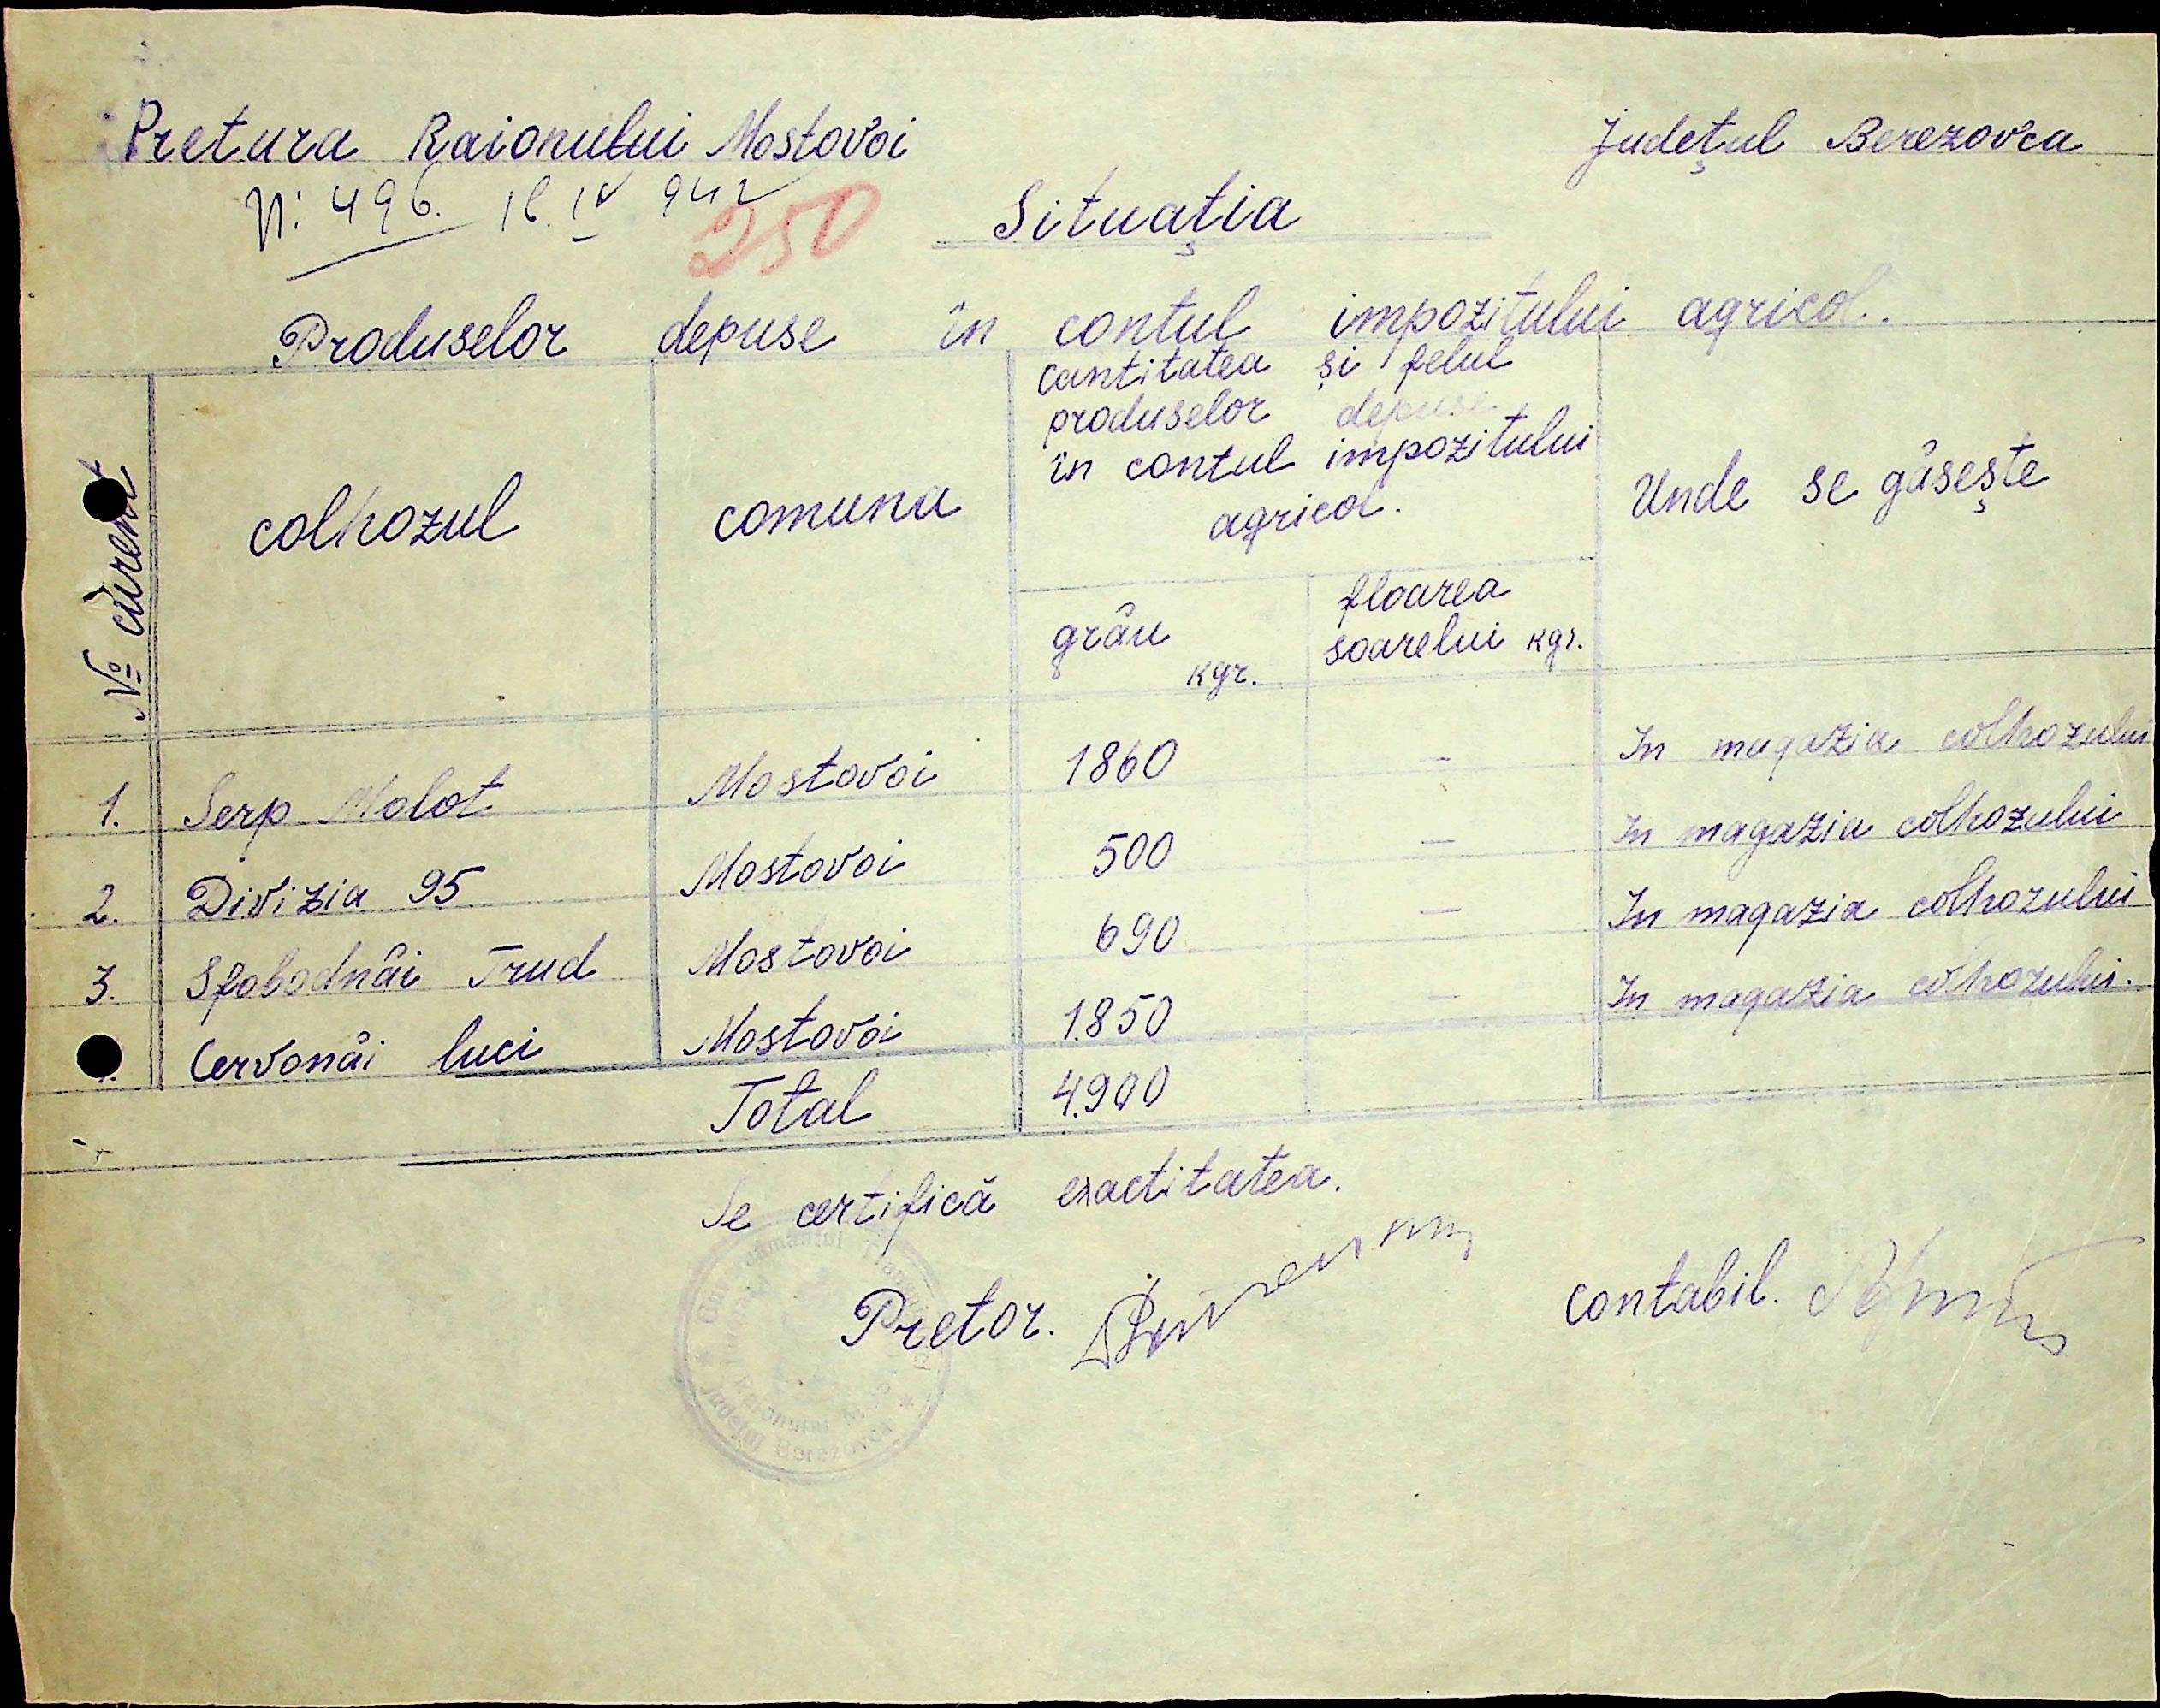 Pretura Raionului Mostovoi Judeţul Berezovca
N: 496. 16.IV 942
250
Situaţia
Produselor depuse în contul impozitului agricol.
№ curent colhozul comuna cantitatea şi felul produselor depuse în contul impozitului agricol. Unde se găseşte
grâu kgr. floarea soarelui kgr.
1. Serp Molot Mostovoi 1860 — In magazia colhozului
2. Divizia 95 Mostovoi 500 — In magazia colhozului
3. Sfobodnâi Trud Mostovoi 690 — In magazia colhozului
Cervonâi luci Mostovoi 1.850 — In magazia colhozului.
Total 4.900
Se certifică exactitatea.
Pretor. contabil.
Judeţul Berezovca
Raionului